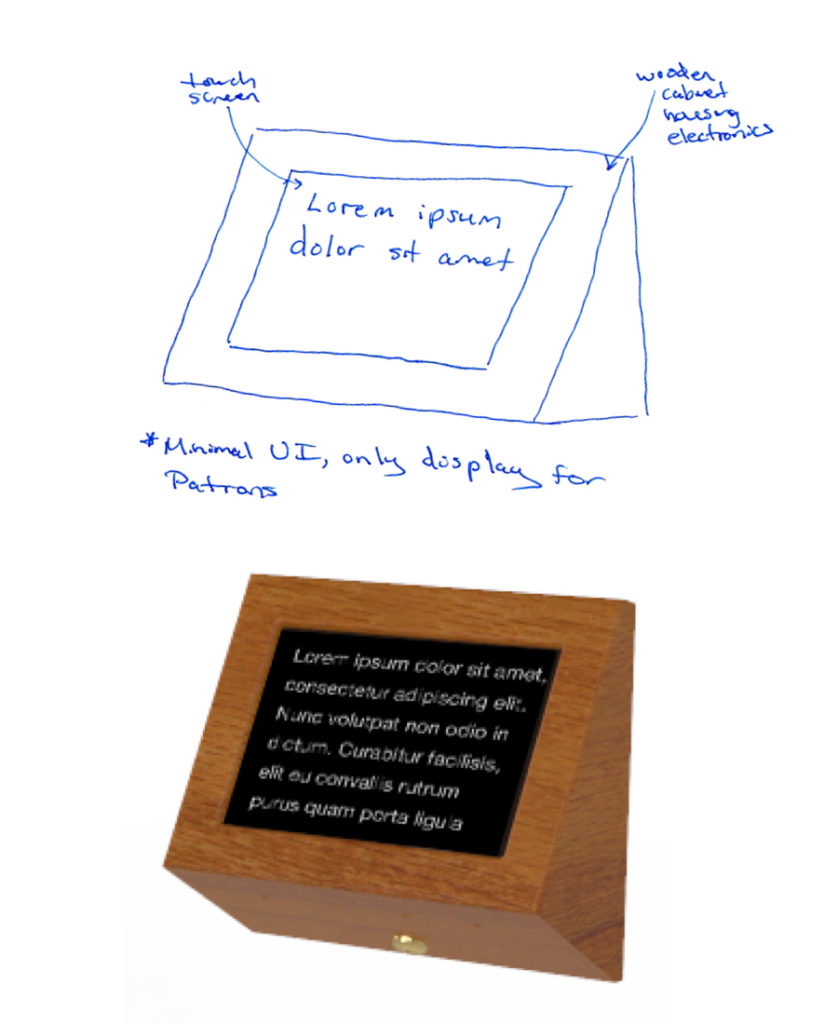 touch
screen
wooden
cabinet
housing
electronics
Lorem ipsum
dolor sit amet
*Minimal UI, only display for
Patrons
Lorem ipsum dolor sit amet,
consectetur adipiscing elit.
Nunc volutpat non odio in
dictum. Curabitur facilisis,
elit eu convallis rutrum
purus quam porta ligula